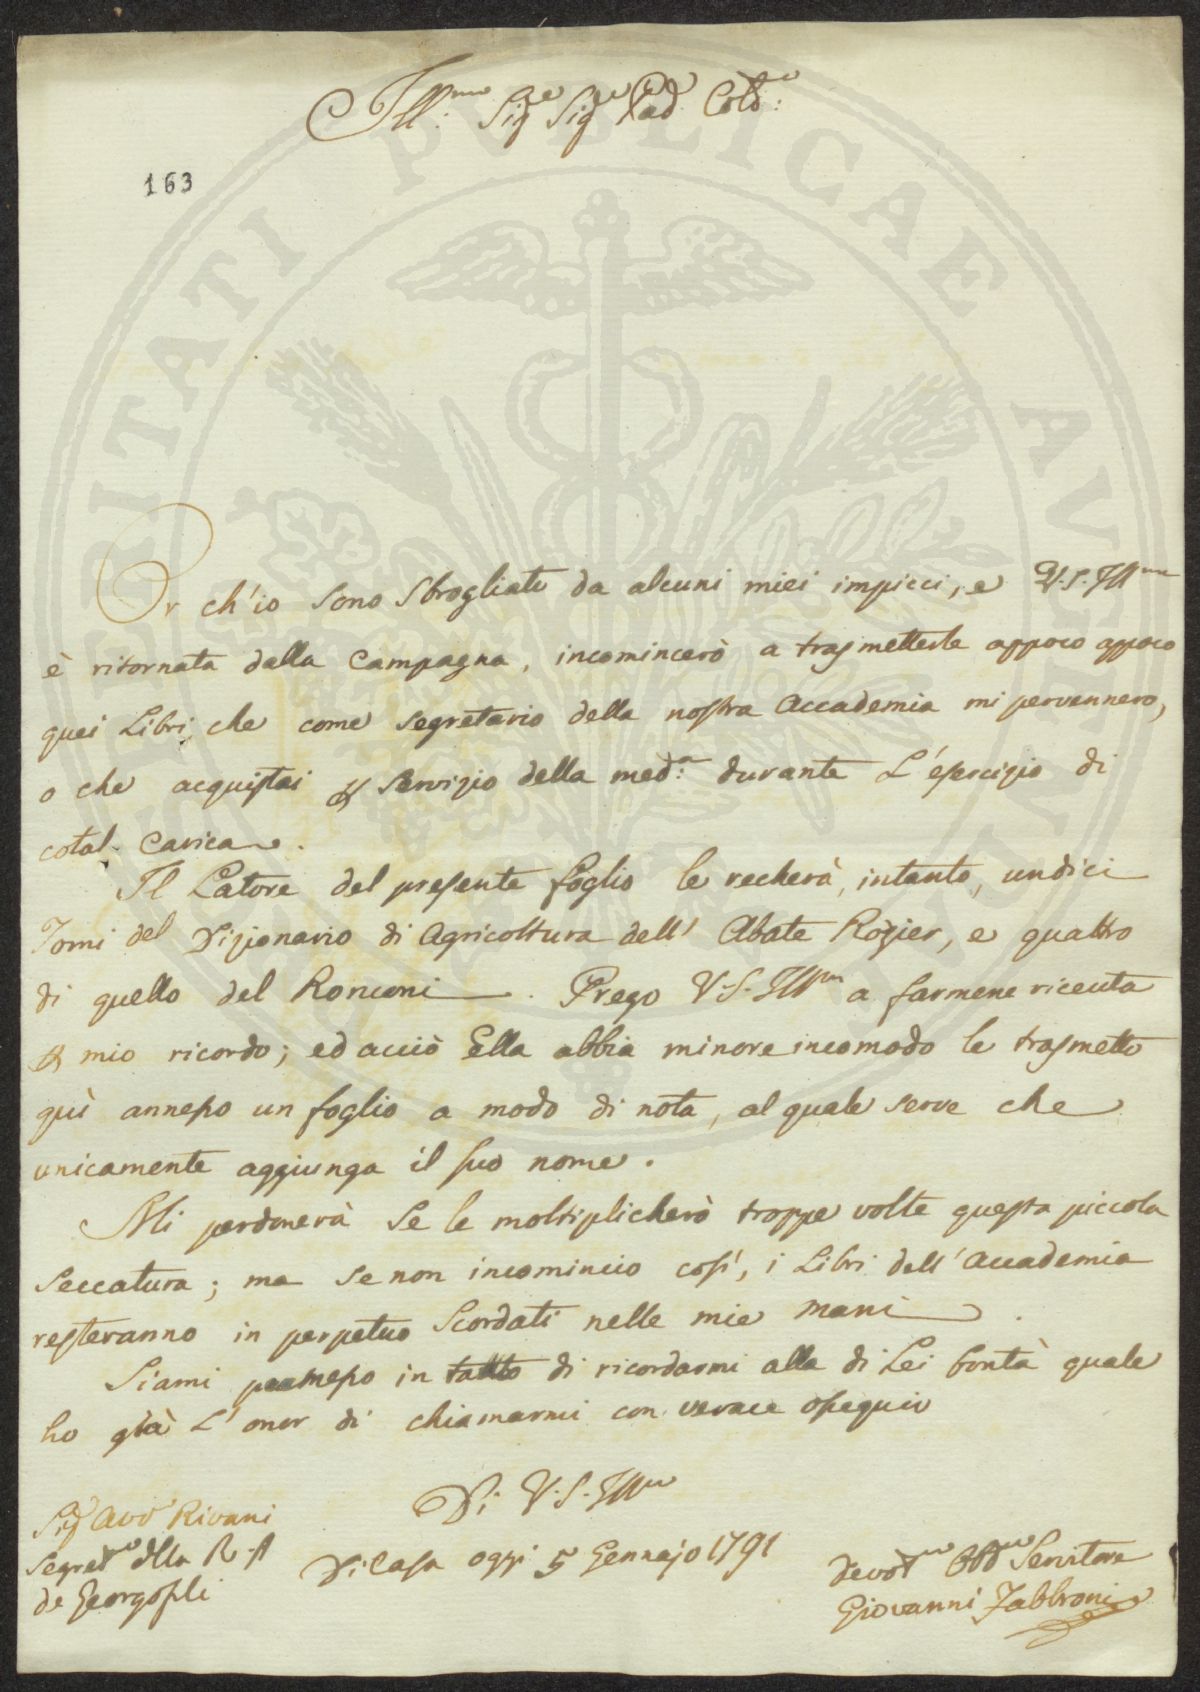 Ill:mo Sig.e Sig.e Pad: Col:mo
163
Or ch'io sono sbrogliato da alcuni miei impicci, e V.S. Ill:ma
è ritornata dalla Campagna, incomincerò a trasmetterle appoco appoco
quei Libri, che come segretario della nostra Accademia mi pervennero,
o che acquistai p servizio della med:a durante L'esercizio di
cotal Carica.
Il Latore del presente foglio le recherà, intanto, undici
Tomi del Dizionario di Agricoltura dell' Abate Rozier, e quattro
di quello del Ronconi. Prego V.S. Ill:ma a farmene ricevuta
p mio ricordo; ed acciò Ella abbia minore incomodo le trasmetto
quì annesso un foglio a modo di nota, al quale serve che
unicamente aggiunga il suo nome.
Mi perdonerà se le moltiplicherò troppe volte questa piccola
seccatura; ma se non incomincio così, i Libri dell'Accademia
resteranno in perpetuo scordati nelle mie mani.
Siami permesso in tanto di ricordarmi alla di Lei bontà quale
ho già L'onor di chiamarmi con verace ossequio
Di V.S. Ill:ma
Sig Avv Rivani
Segret:o dlla R. A
de Georgofili
Di Casa oggi 5 Gennajo 1791
Devot:mo Obb:mo Servitore
Giovanni Fabbroni
VERITATI PUBLICAE